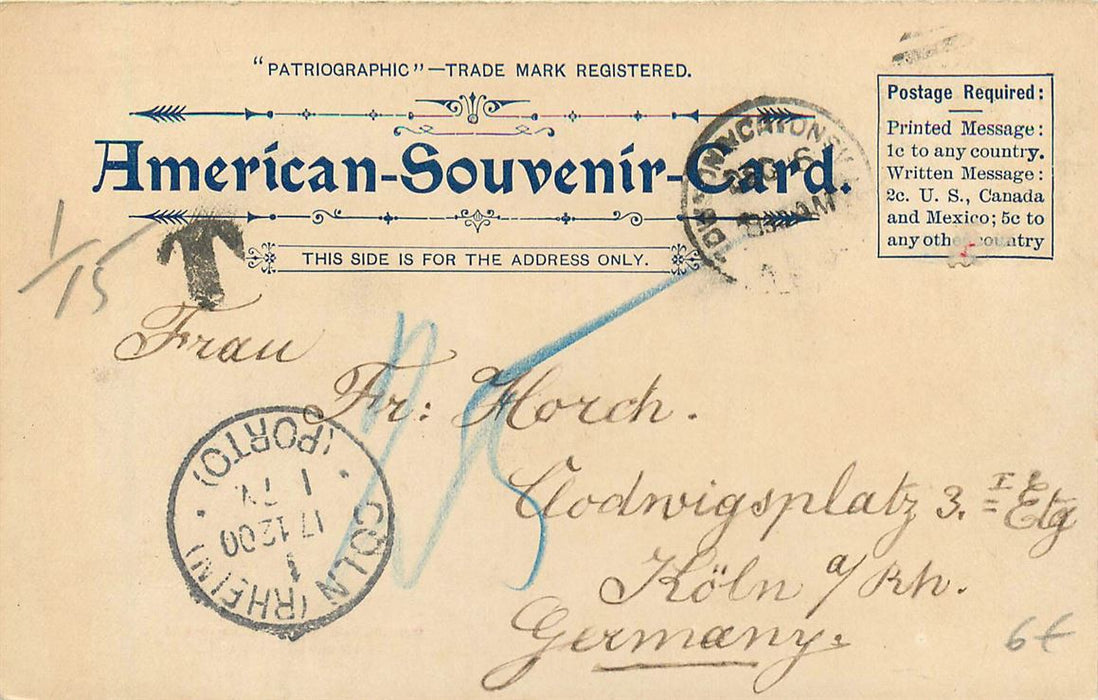 "PATRIOGRAPHIC"—TRADE MARK REGISTERED.
American-Souvenir-Card.
THIS SIDE IS FOR THE ADDRESS ONLY.
Postage Required:
Printed Message:
1c to any country.
Written Message:
2c. U. S., Canada
and Mexico; 5c to
any other country
DEC 6
1/15
T
Frau
Fr: Horch.
Clodwigsplatz 3. I E Etg
Köln a/Rh.
Germany.
25
CÖLN (RHEIN)
(PORTO)
1
17 12 00
1
6€